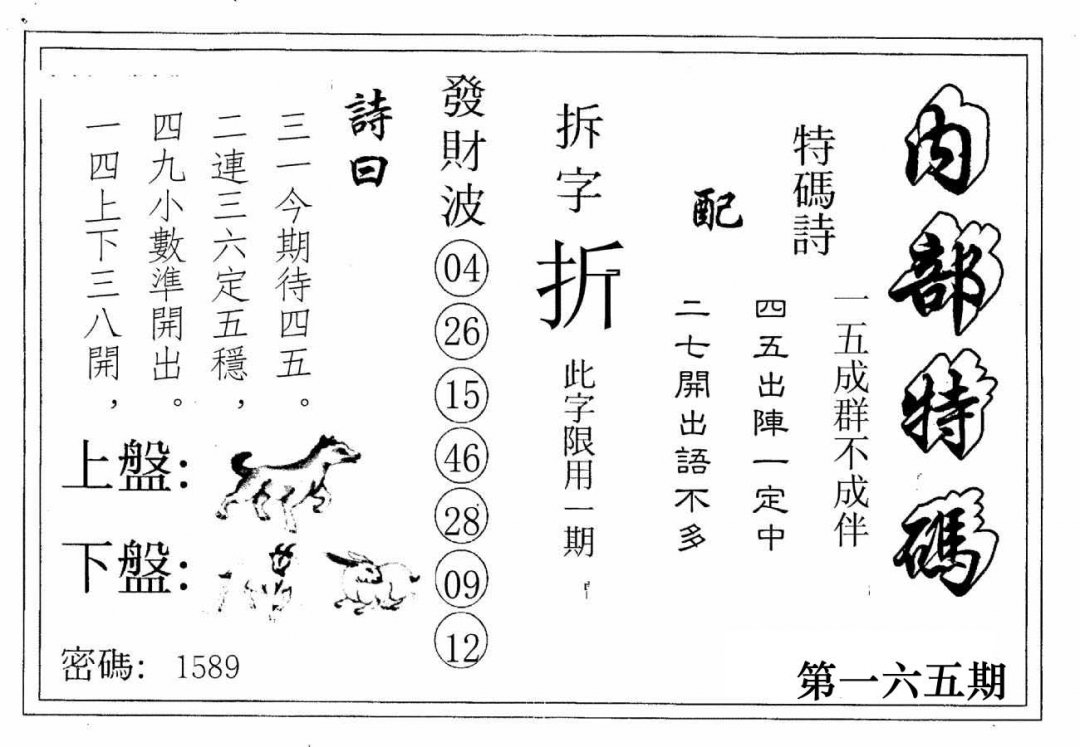 內部特碼
特碼詩
一五成群不成伴
配
四五出陣一定中
二七開出語不多
拆字
折
此字限用一期
發財波
04
26
15
46
28
09
12
詩曰
三一今期待四五。
二連三六定五穩，
四九小數準開出。
一四上下三八開，
上盤：
下盤：
密碼：1589
第一六五期